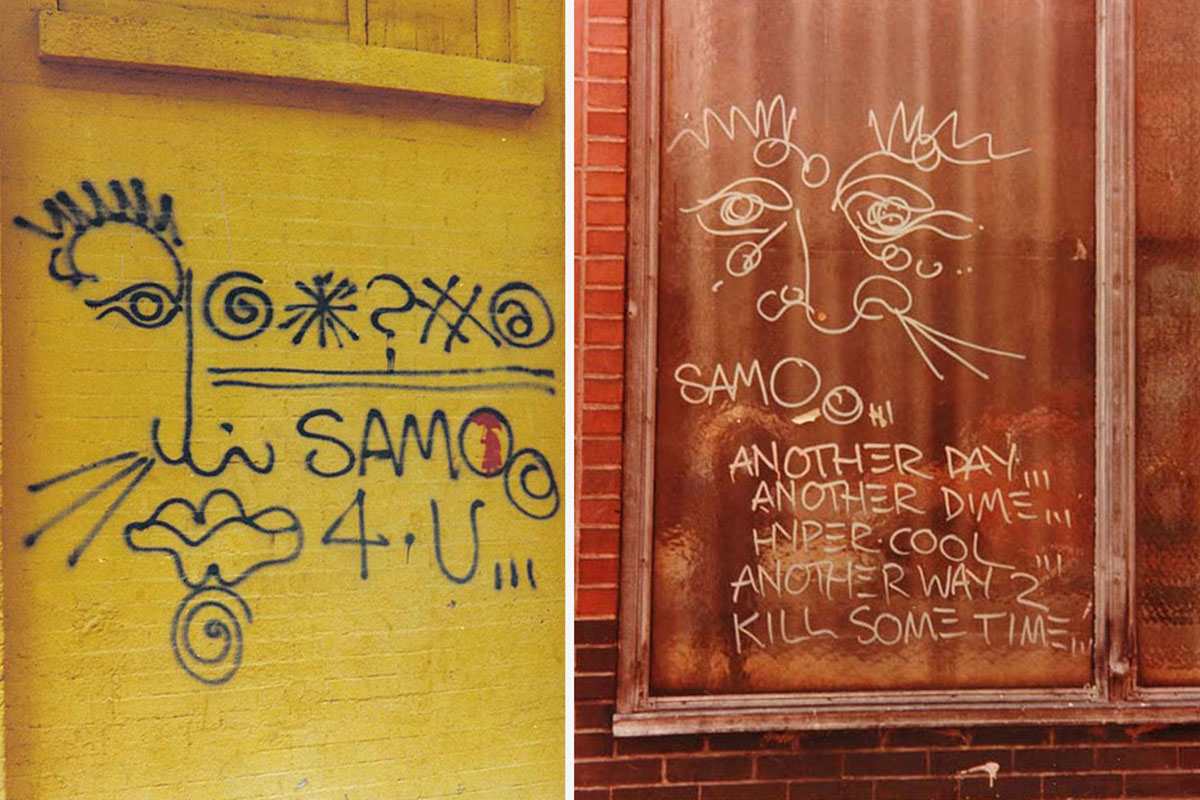 @*?XX@
SAMO©
4.U,,,
SAMO©
HI
ANOTHER DAY,,,
ANOTHER DIME,,,
HYPER·COOL,,,
ANOTHER WAY 2
KILL SOME TIME,,,